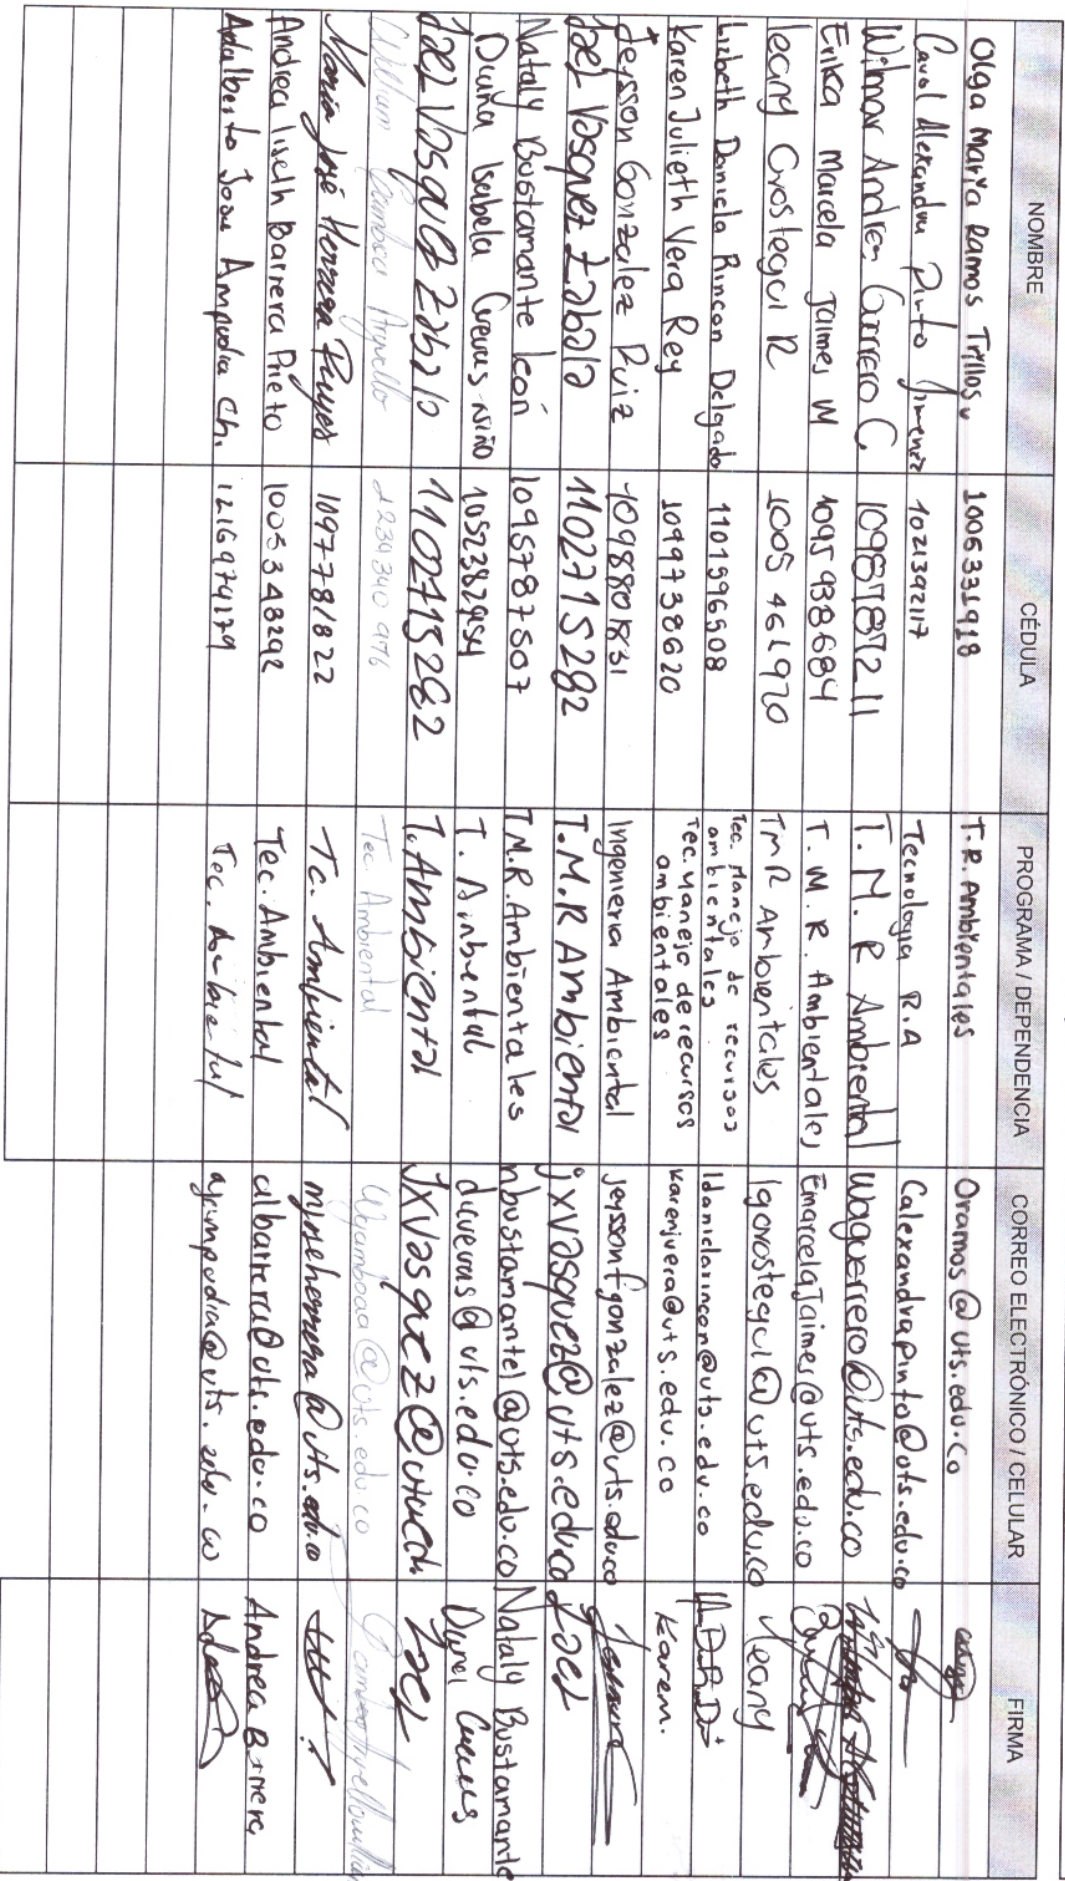 NOMBRE CÉDULA PROGRAMA / DEPENDENCIA CORREO ELECTRÓNICO / CELULAR FIRMA
Olga Maria Ramos Trillos 1005331918 T.R. Ambientales Oramos@uts.edu.co
Carol Alexandra Pinto Jimenez 1021392117 Tecnologia R.A Calexandrapinto@uts.edu.co
Wilmar Andres Guerrero C 1098787211 T. M. R Ambiental Waguerrero@uts.edu.co
Erika Marcela Jaimes M 1095938684 T. M. R. Ambientales Emarcelajaimes@uts.edu.co
leany Grostegui R 1005461970 TMR Ambientales lgorostegui@uts.edu.co Yeany
Lizbeth Daniela Rincon Delgado 1101596508 Tec. Manejo de recursos ambientales ldanielarincon@uts.edu.co
Karen Julieth Vera Rey 1099738620 Tec. Manejo de recursos ambientales karenjvera@uts.edu.co Karem.
Jeysson Gonzalez Ruiz 1098801831 Ingenieria Ambiental jeyssonfgonzalez@uts.edu.co
Jael Vasquez Zabala 1102715282 T.M.R Ambiental jxvasquez@uts.edu.co Jael
Nataly Bustamante león 1095787507 T.M.R. Ambientales nbustamantel@uts.edu.co Nataly Bustamante
Isabela Cuevas Niño T. Ambiental dcuevas@uts.edu.co Cuevas
Jael Vasquez Zabala 1102715282 T. Ambiental Jxvasquez@ Jael
William Gamboa Arguello Tec. Ambiental Wgamboaa@uts.edu.co
Maria José Herrera 1097781822 Tc. Ambiental mjoseherrera@uts.edu.co
Andrea liseth Barrera Prieto 1005348292 Tec. Ambiental albarrera@uts.edu.co Andrea Barrera
Adalberto Jose Ampudia Ch. 1216974179 Tec. Ambiental ajampudia@uts.edu.co